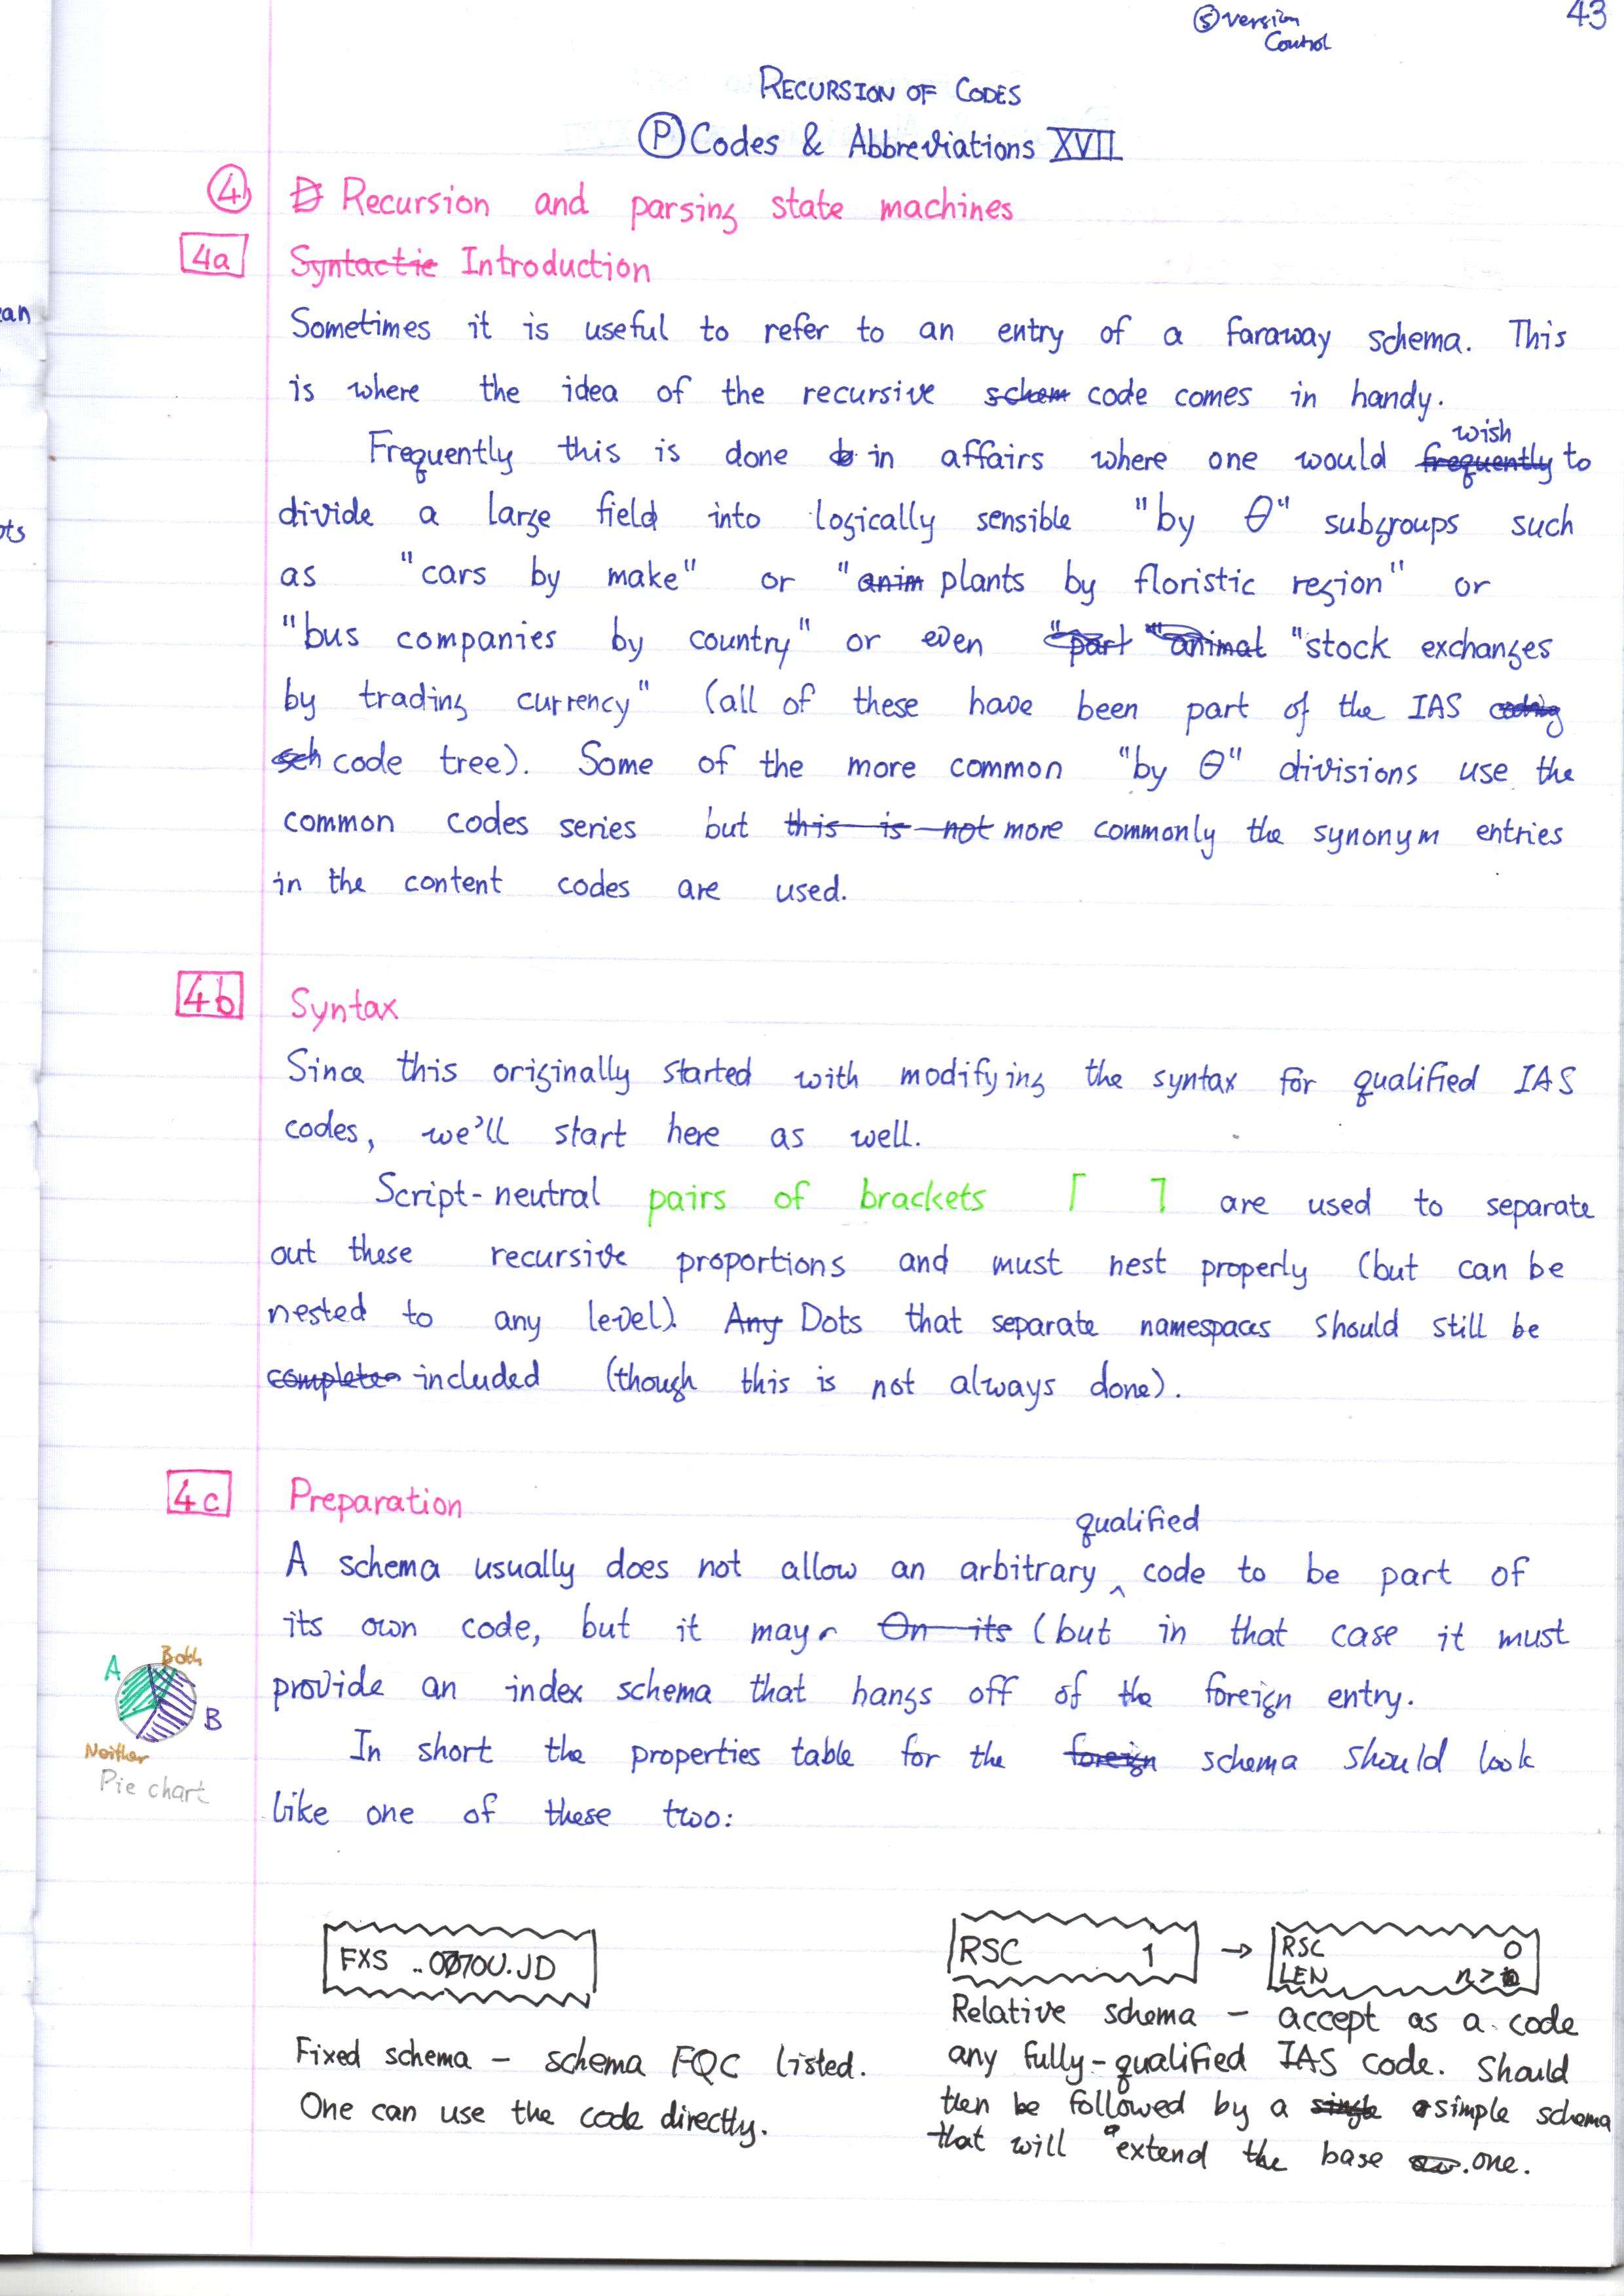 ⑤ Version
Control
43
RECURSION OF CODES
Ⓟ Codes & Abbreviations XVII
④ Recursion and parsing state machines
4a Syntactic Introduction
Sometimes it is useful to refer to an entry of a faraway schema. This
is where the idea of the recursive schem code comes in handy.
wish
Frequently this is done in affairs where one would frequently to
divide a large field into logically sensible "by θ" subgroups such
as "cars by make" or "anim plants by floristic region" or
"bus companies by country" or even "part "animal "stock exchanges
by trading currency" (all of these have been part of the IAS coding
sch code tree). Some of the more common "by θ" divisions use the
common codes series but this is not more commonly the synonym entries
in the content codes are used.
4b Syntax
Since this originally started with modifying the syntax for qualified IAS
codes, we'll start here as well.
Script-neutral pairs of brackets ⌈ ⌉ are used to separate
out these recursive proportions and must nest properly (but can be
nested to any level). Any Dots that separate namespaces should still be
included (though this is not always done).
4c Preparation
qualified
A schema usually does not allow an arbitrary ‸ code to be part of
its own code, but it may On its (but in that case it must
provide an index schema that hangs off of the foreign entry.
In short the properties table for the foreign schema should look
like one of these two:
A
Both
B
Neither
Pie chart
FXS ..0070U.JD
RSC 1 → RSC 0
LEN
Fixed schema – schema FQC listed.
One can use the code directly.
Relative schema – accept as a code
any fully-qualified IAS code. Should
then be followed by a single simple schema
that will extend the base one.
an
ots